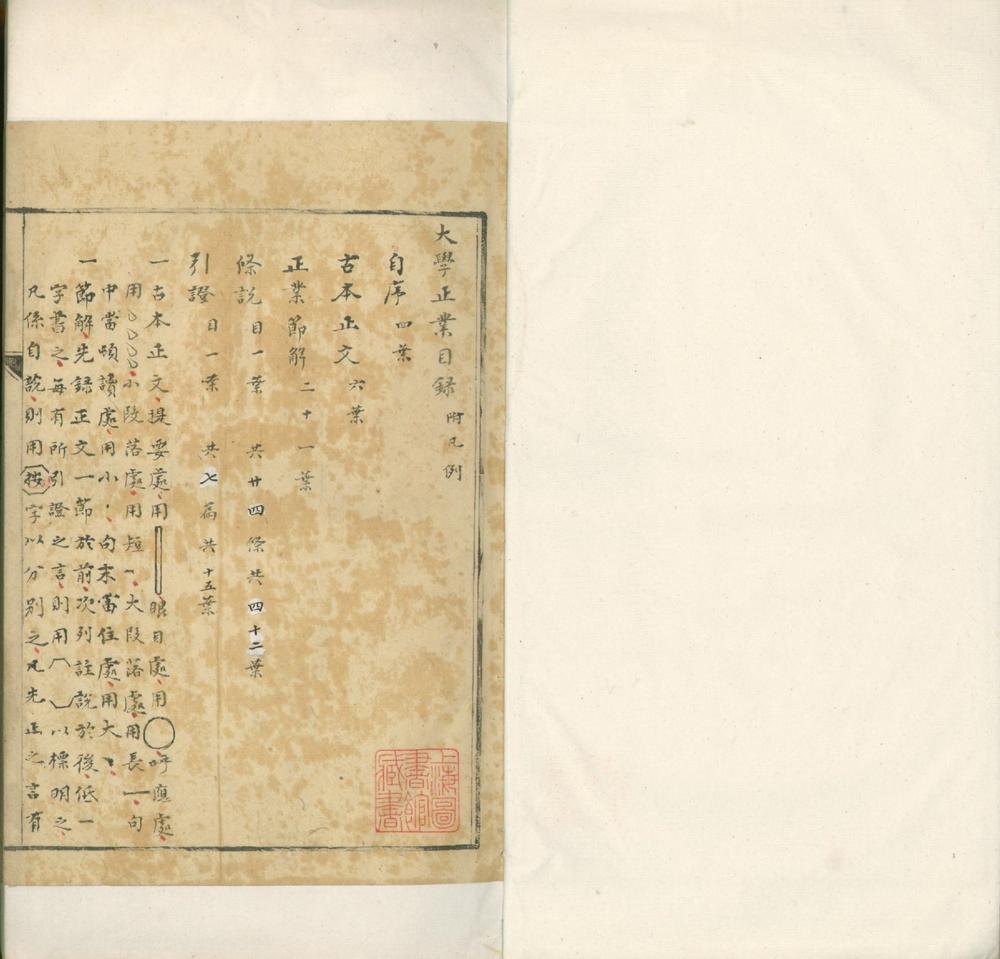 大學正業目録 附凡例
自序 四葉
古本正文 六葉
正業節解 二十一葉
條説 目一葉 共廿四條共四十二葉
引證 目一葉 共七篇共十五葉
一古本正文、提要處、用 眼目處、用〇呼應處、
用〇〇〇〇、小段落處、用短一、大段落處、用長一、句
中當頓讀處、用小、句末當住處、用大、
一節解、先録正文一節於前、次列註說於後、低一
字書之、每有所引證之言、則用︹︺以標明之、
凡係自說、則用按字以分別之、凡先正之言有
上海圖書館藏書